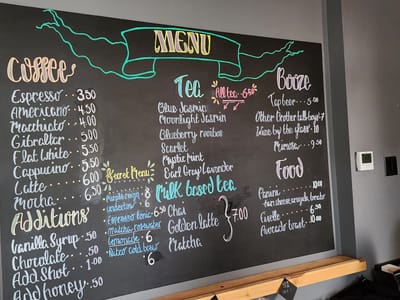 MENU
Coffee
Espresso . . 3.50
Americano . . 4.50
Macchiato . . 4.00
Gibraltar . . 5.00
Flat white . . 5.50
Cappuccino . . 5.50
Latte . . . 6.00
Mocha . . . 6.50
Additions
Vanilla Syrup . .50
Chocolate . . . .50
Add Shot . . . 1.00
Add honey . . .50
Secret Menu
8
undertow 6
Espresso tonic . 6
Matcha rosewater
Lemonade . . 6
Nitro cold brew . 6
Tea
All tea . . 5.50
Blue Jasmin
Moonlight Jasmin
Blueberry rooibos
Scarlet
Mystic Mint
Earl Grey Lavender
Milk based tea
Chai
Golden latte
Matcha
7.00
Booze
Tap beer . . . 5.00
Other Brother tall boys . 7
Wine by the glass . 10
Mimosa . . . 9.50
Food
Panini . . . . 10.00
Ham cheese, arugula, tomato
6.50
Avocado toast . . 10.00